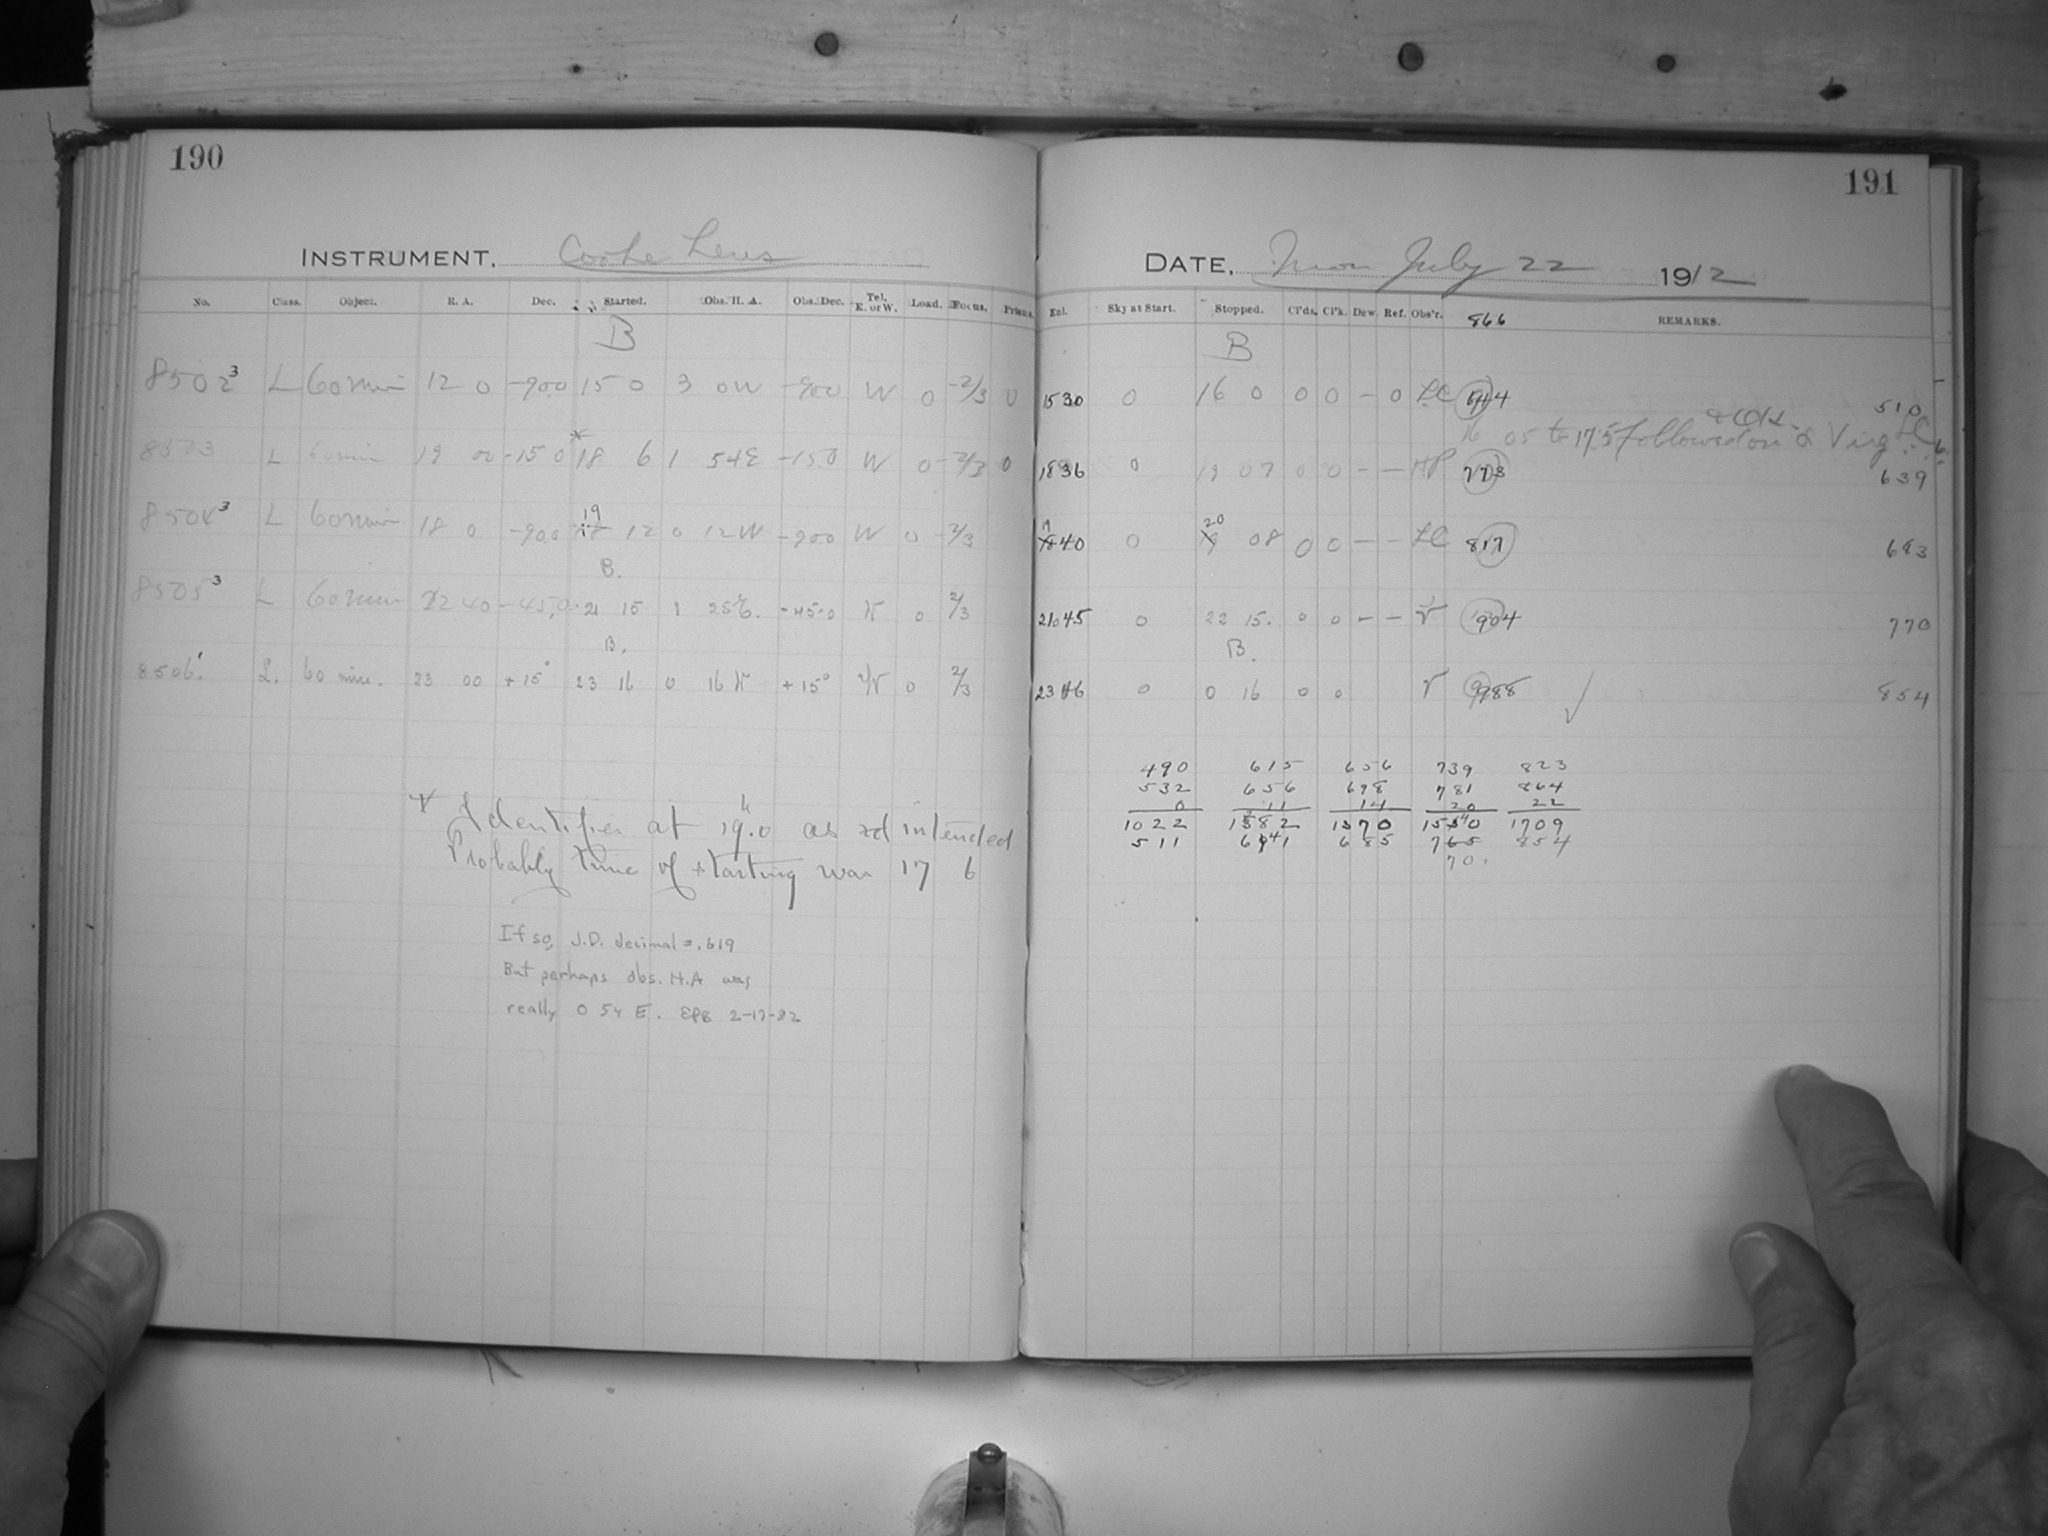 190
191
INSTRUMENT, Cooke Lens
DATE, Mon July 22 1912
No. Class. Object. R. A. Dec. Started. Obs. H. A. Obs. Dec. Tel. E. or W. Load. Focus. Prism.
Exl. Sky at Start. Stopped. Cl'ds. Cl'k. Dew. Ref. Obs'r. 866 REMARKS.
B
B
8502 3 L 60 min 12 0 -90.0 15 0 3 0W -90.0 W 0 -2/3 0
1530 0 16 0 0 0 - 0 LC 510
16 05 to 17 5 followed on α Virg
8503 L 60 min 19 00 -15 0 18 6 1 54E -15.0 W 0 -2/3 0
1836 0 19 07 0 0 - - 773 639
8504 3 L 60 min 18 0 -90.0 19 12 0 12W -90.0 W 0 -2/3
1940 0 20 08 0 0 - - LC 817 683
B.
8505 3 L 60 min 22 40 -45.0 21 15 1 25E. -45.0 W 0 2/3
21 45 0 22 15. 0 0 - - V 904 770
B.
B.
8506 1 L. 60 min. 23 00 +15° 23 16 0 16W +15° W 0 2/3
2346 0 0 16 0 0 V 988 854
490 615 656 739 823
532 656 698 781 864
0 11 14 20 22
1022 1282 1370 1540 1709
511 641 685 854
70
Identifier at 19h.0 as rd intended
Probably time of starting was 17 6
If so, J.D. decimal = .619
But perhaps obs. H.A was
really 0 54 E. EPB 2-17-82